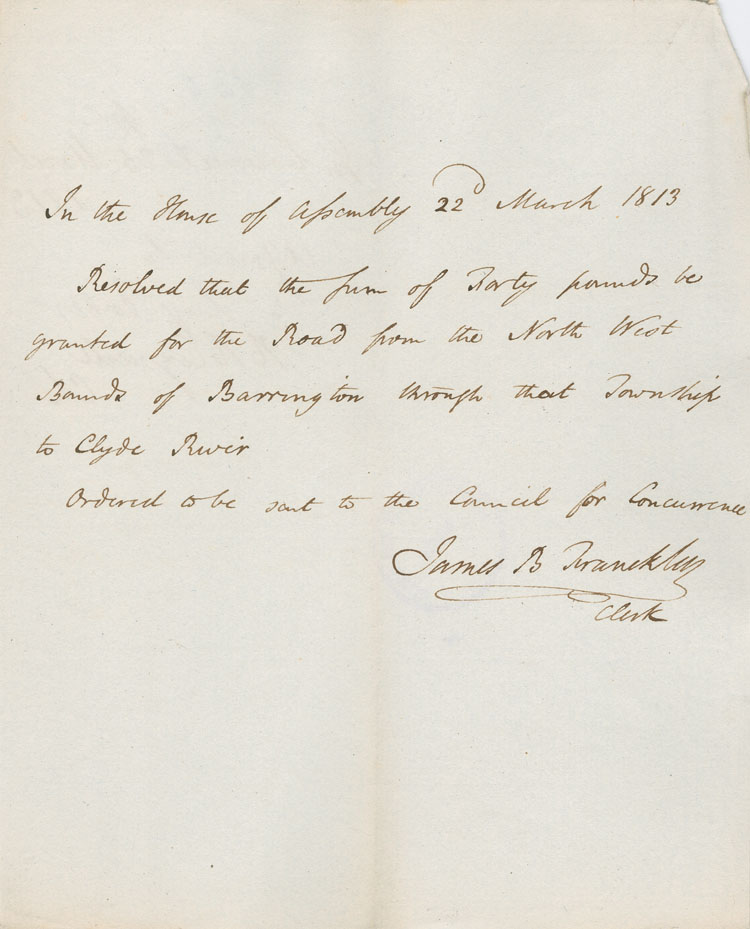 In the House of Assembly 22d March 1813
Resolved that the sum of Forty pounds be
granted for the Road from the North West
Bounds of Barrington through that Township
to Clyde River
Ordered to be sent to the Council for Concurrence
James B Francklin
Clerk